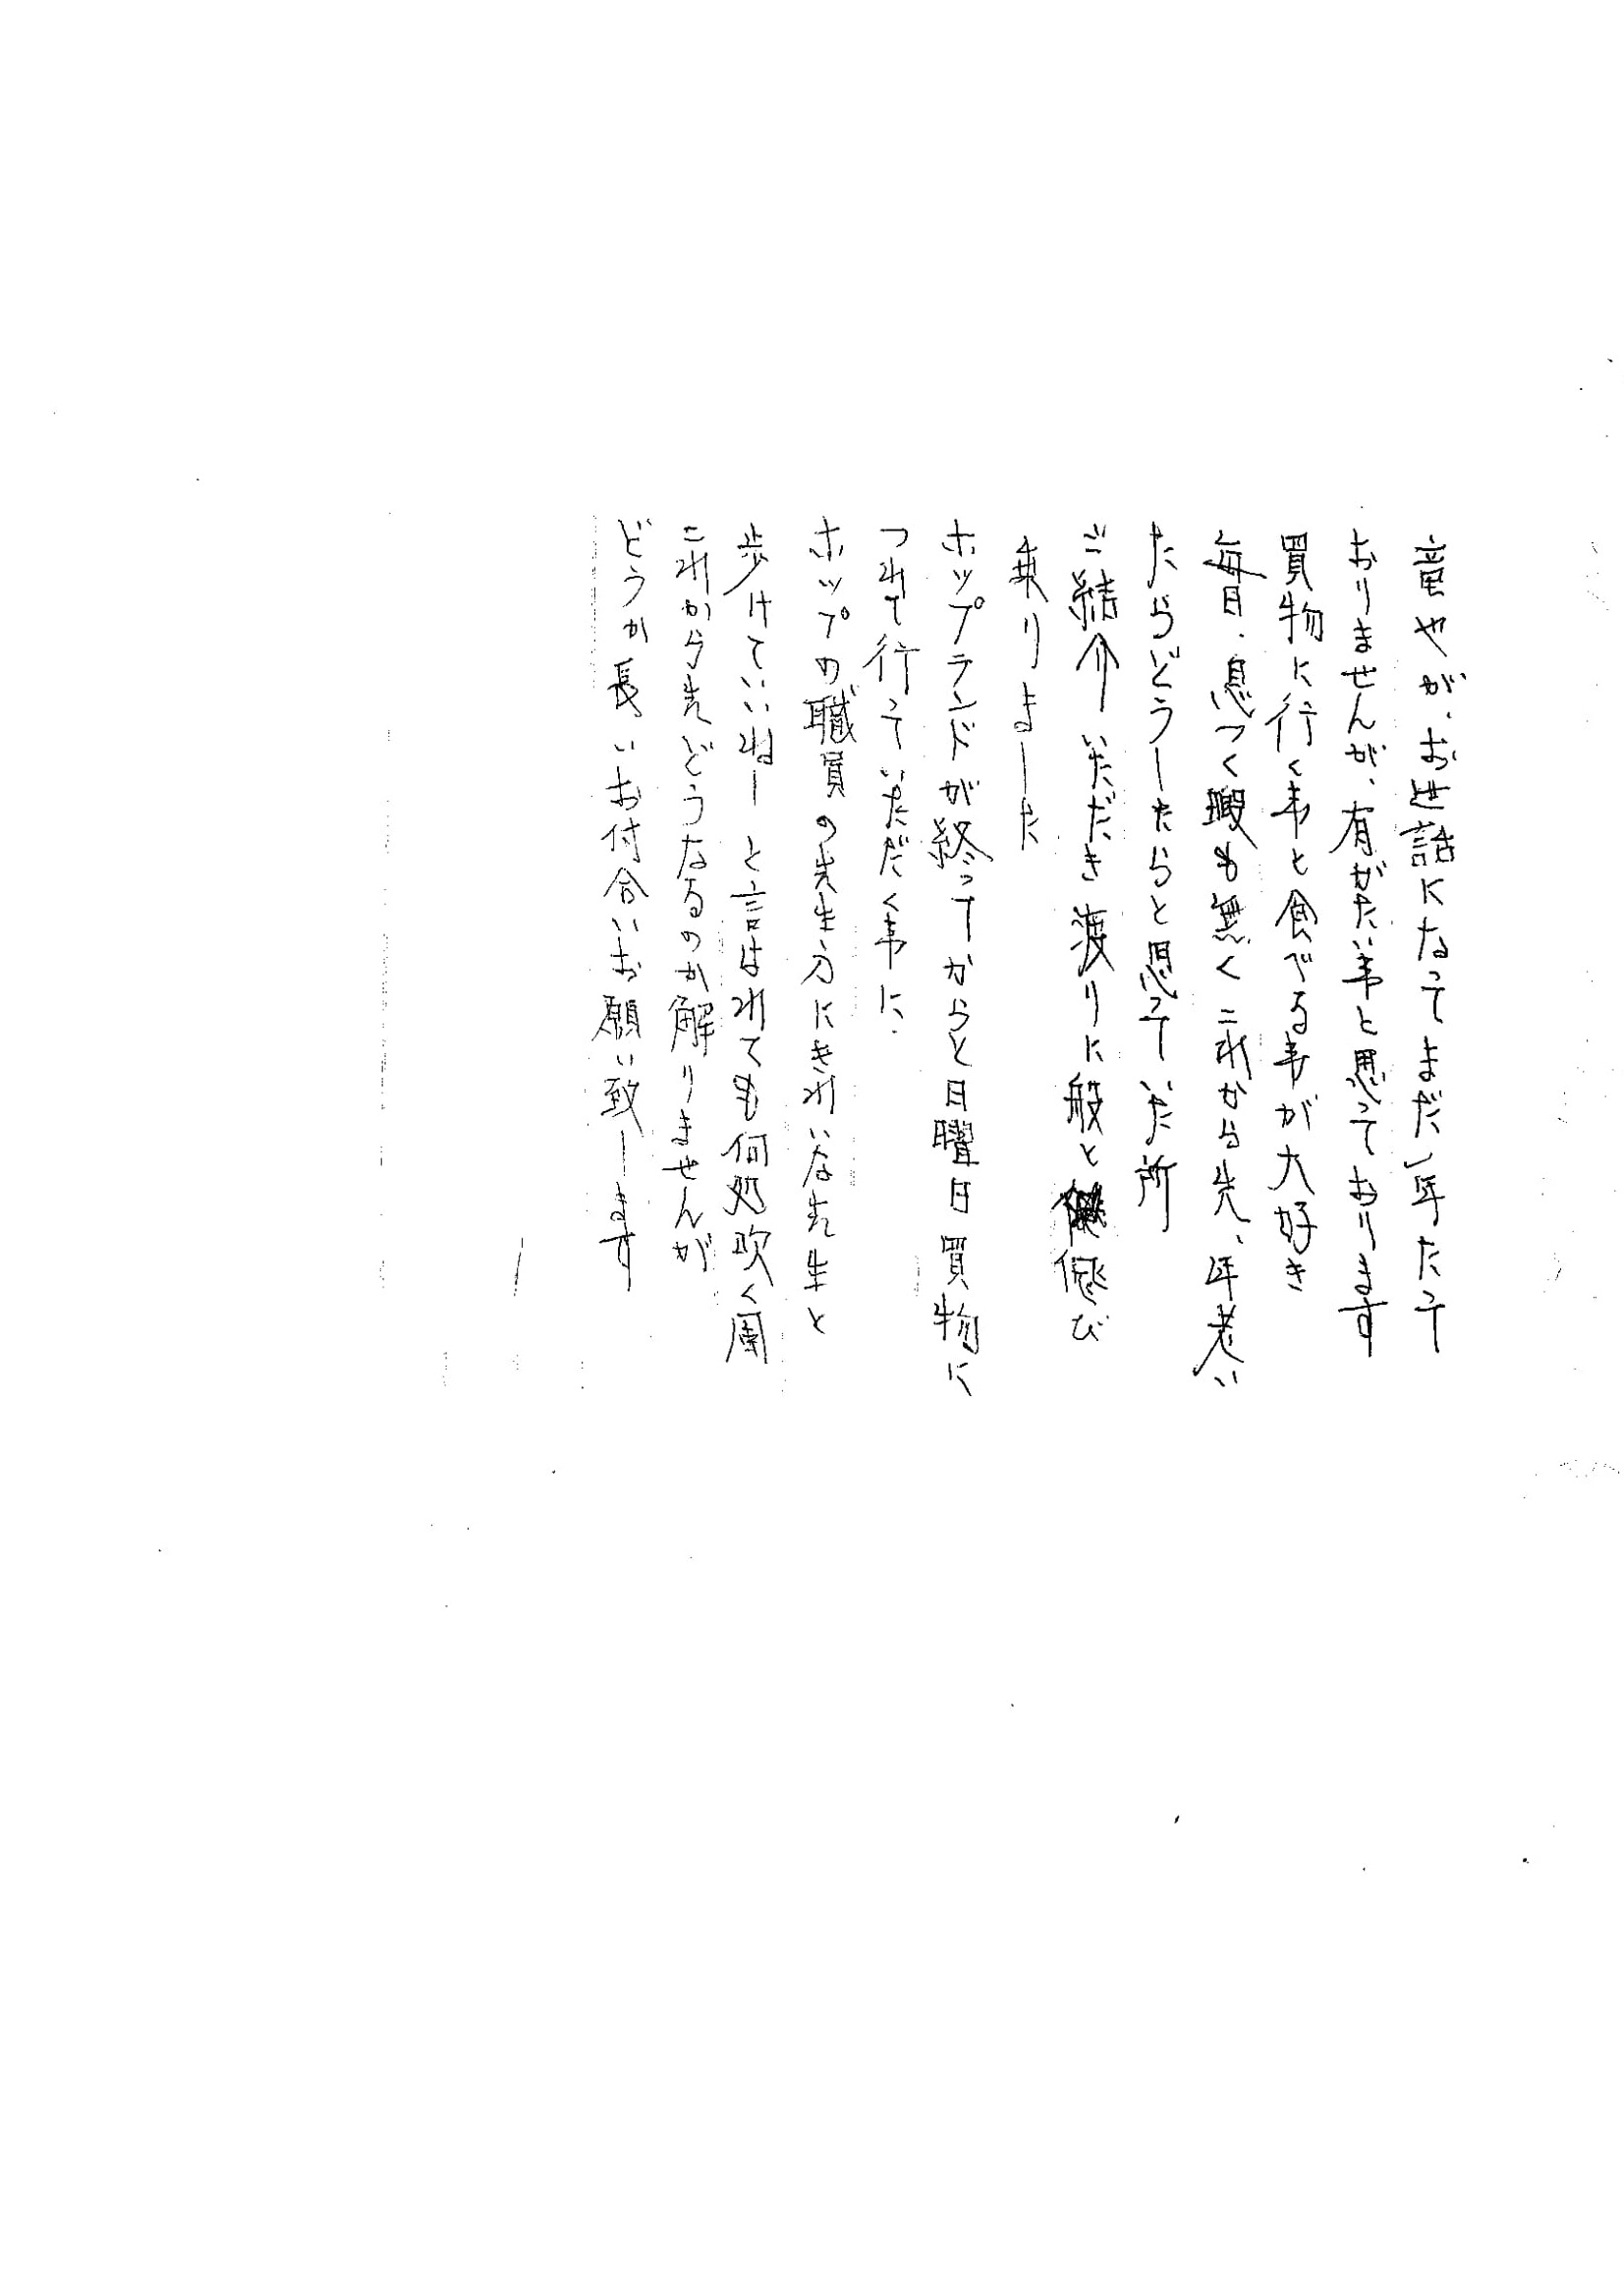 竜やが、お世話になってまだ一年たって
おりませんが、有がたい事と思っております
買物に行く事と食べる事が大好き
毎日、息つく暇も無くこれから先、年老い
たらどうしたらと思っていた所
ご結介いただき渡りに般と偲び
乗りました
ホップランドが終ってからと日曜日買物に
つれて行っていただく事に、
ホップの職員の先生方にきれいな先生と
歩けていいねーと言はれても何処吹く風
これから先どうなるのか解りませんが
どうか長いお付合いお願い致します